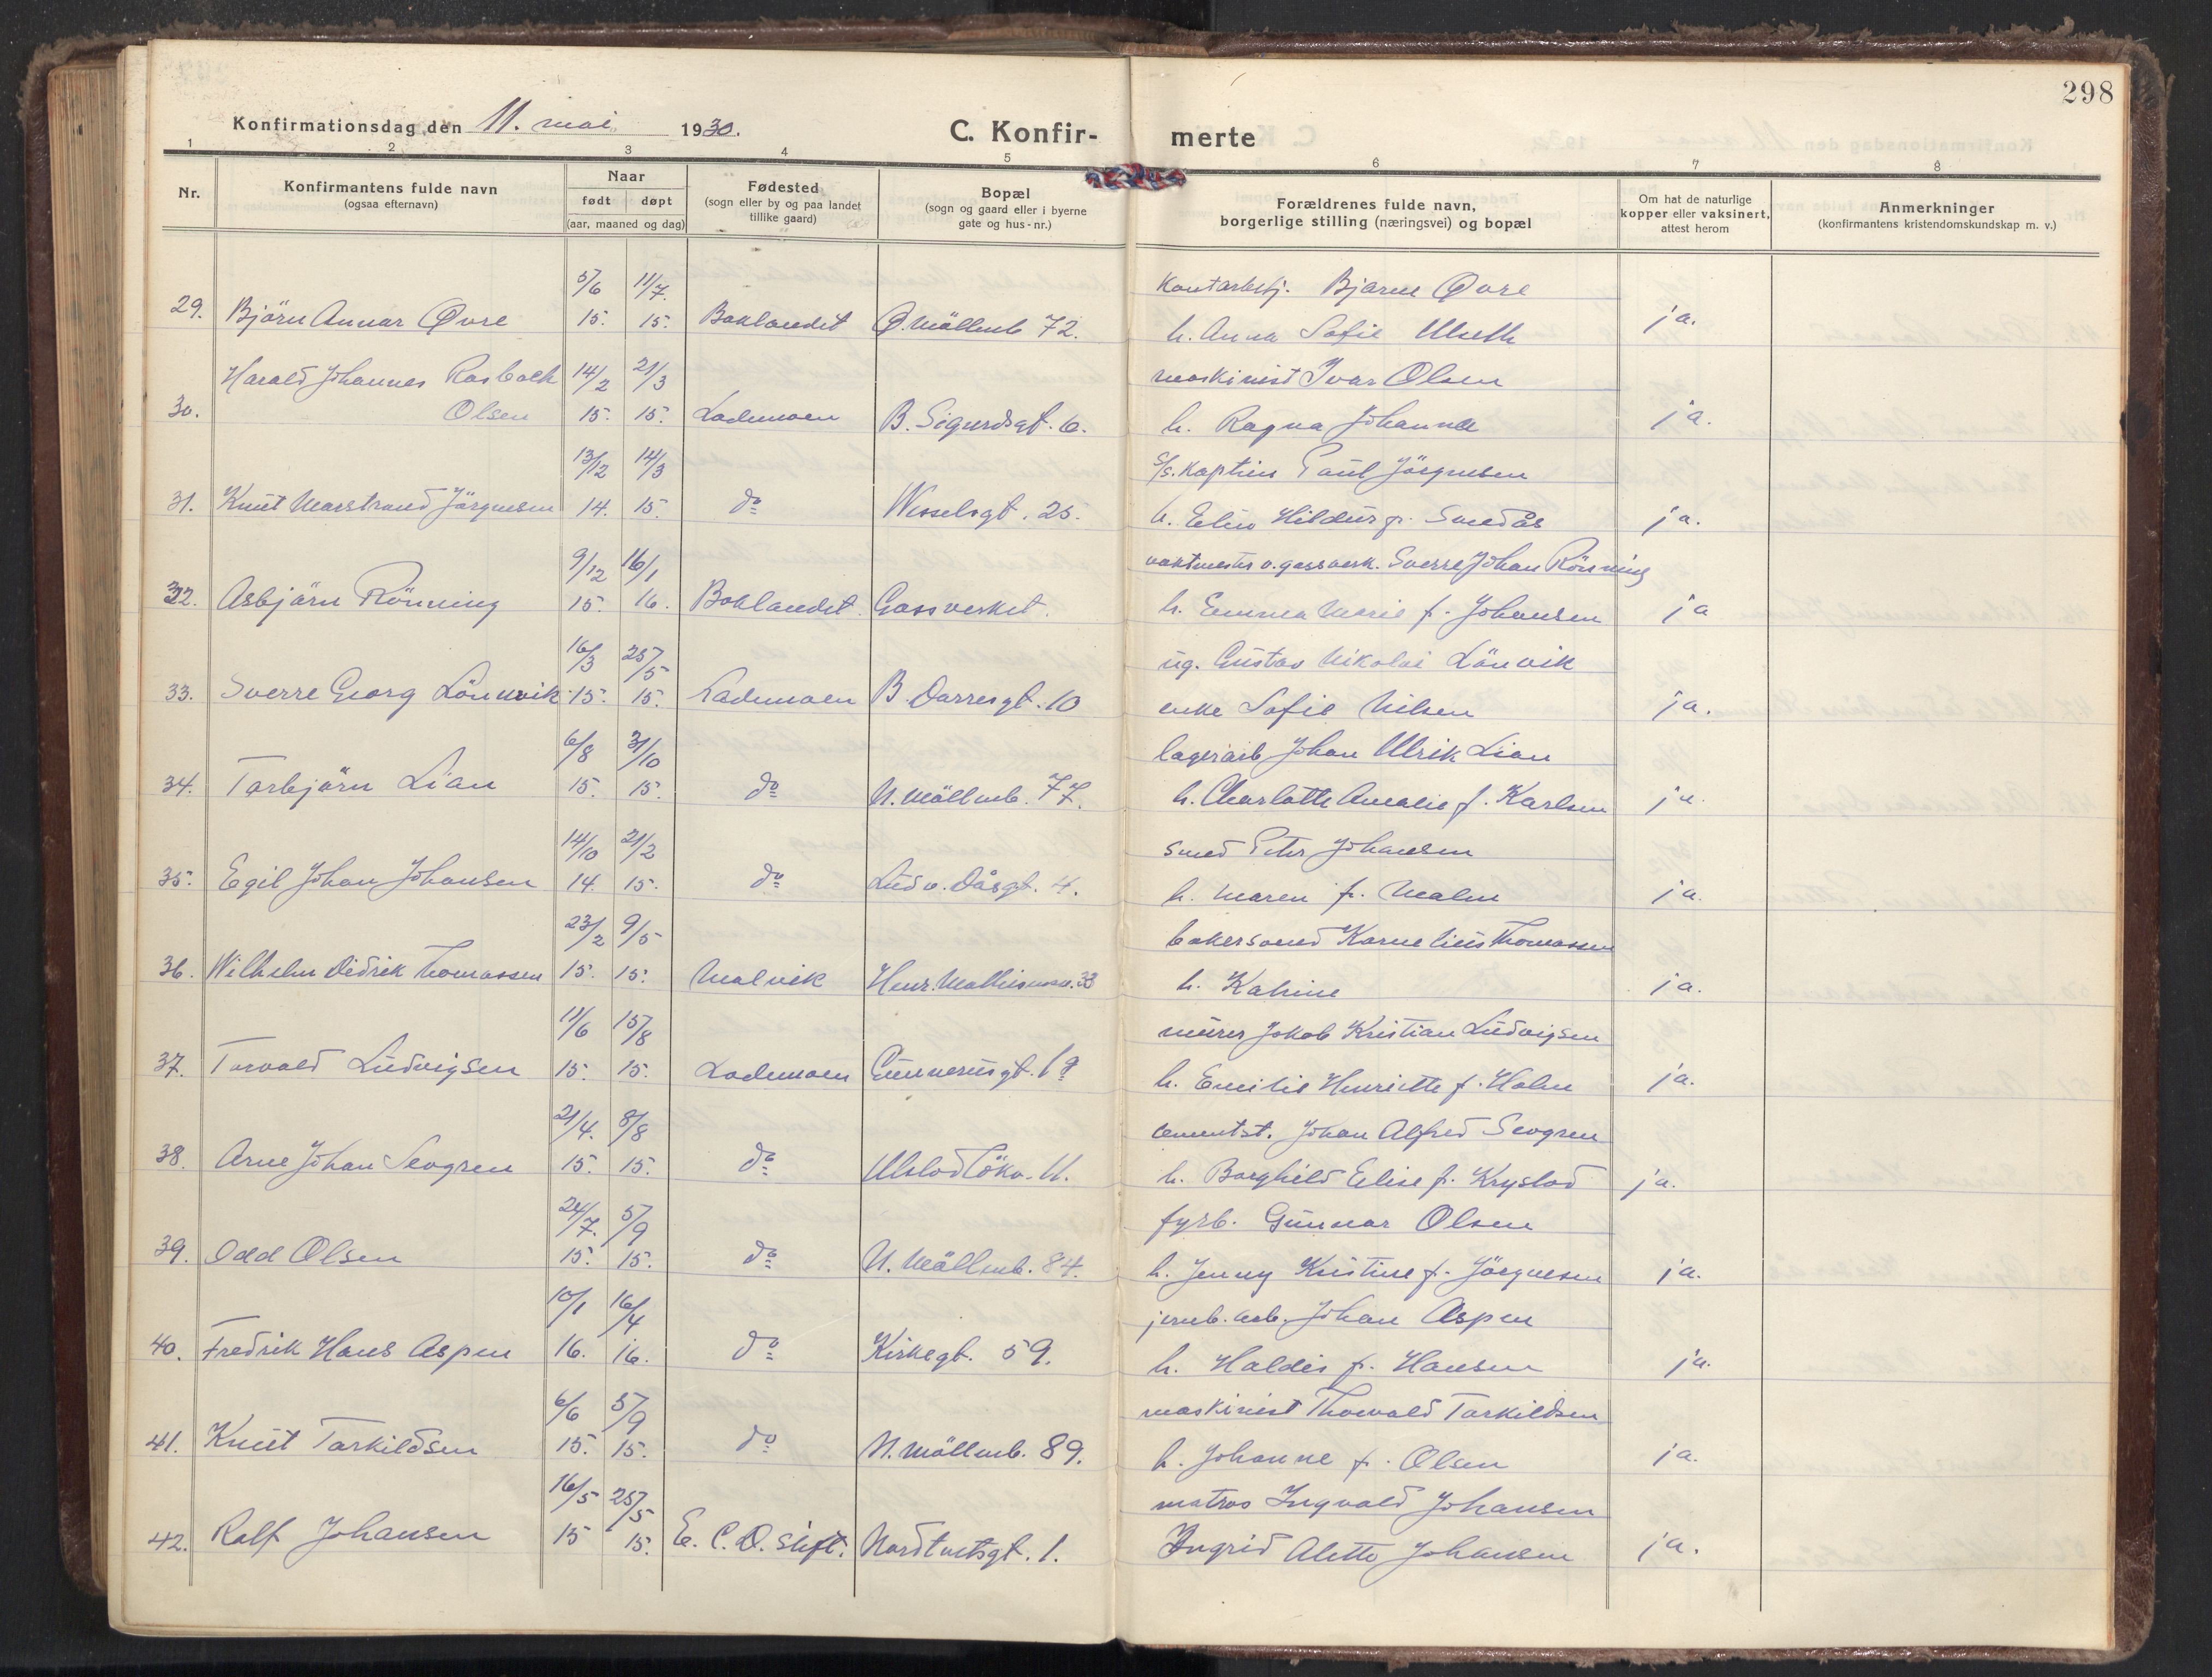 298
Konfirmationsdag den 11. mai 1930.
C. Konfir-
merte
1 2 3 4 5 6 7 8
Nr.
Konfirmantens fulde navn
(ogsaa efternavn)
Naar
født døpt
(aar, maaned og dag)
Fødested
(sogn eller by og paa landet
tillike gaard)
Bopæl
(sogn og gaard eller i byerne
gate og hus-nr.)
Forældrenes fulde navn,
borgerlige stilling (næringsvei) og bopæl
Om hat de naturlige
kopper eller vaksinert,
attest herom
Anmerkninger
(konfirmantens kristendomskundskap m. v.)
5/6 11/7. Bjarne Øvre
29. Björn Annar Øvre 15. 15. Baklandet Ø. Möllenb 72. h. Anna Sofie ja.
Harald Johannes Rosbach 14/2 21/3 maskinist Ivar Olsen
30. Olsen 15. 15. Lademoen B. Sigurdsgt. 6. h. Ragna Johanne ja.
13/12 14/3 S/s. Kaptein Paul Jörgensen
31. Knut Marstrand Jörgensen 14. 15. do Wesselsgt. 25. h. Elin Hildur f. Smedås ja.
9/12 16/1 vaktmester v. gassverk. Sverre Johan Rönning
32. Asbjörn Rönning 15. 16. Baklandet. Gassverket. h. Emma Marie f. Johansen ja
16/3 25/5 ug. Gustav Nikolai Lönvik
33. Sverre Georg Lönnvik 15. 15. Lademoen B. Darresgt. 10 enke Sofie Nilsen ja.
6/8 31/10 lagerarb Johan Ulrik Lian
34. Torbjörn Lian 15. 15. do N. Möllenb. 77. h. Charlotte Amalie f. Karlsen ja.
14/10 21/2 smed Peter Johansen
35. Egil Johan Johansen 14. 15. do Ludv. Dåsgt. 4. h. Maren f. Malm ja.
23/2 9/5 bakersvend Kornelius Thomassen
36. Wilhelm Didrik Thomassen 15. 15. Malvik Henr. Mathiesensv. 33 h. Katrine ja.
11/6 15/8 murer Jakob Kristian Ludvigsen
37. Torvald Ludvigsen 15. 15. Lademoen Gunnerusgt. 1a h. Emilie Henriette f. Holm ja.
21/4. 8/8 cementst. Johan Alfred Sevgren
38. Arne Johan Sevgren 15. 15. do Ulstadlökv. 11. h. Borghild Elise f. Krystad ja.
24/7. 5/9 fyrb. Gunnar Olsen
39. Odd Olsen 15. 15. do N. Möllenb. 84. h. Jenny Kristine f. Jörgensen ja.
10/1 16/4 jernb. arb. Johan Aspen
40. Fredrik Hans Aspen 16. 16. do Kirkegt. 59. h. Haldis f. Hansen ja.
6/6 5/9 maskinist Thorvald Torkildsen
41. Knut Torkildsen 15. 15. do N. Möllenb. 89. h. Johanne f. Olsen ja.
16/5 25/5 matros Ingvald Johansen
42. Rolf Johansen 15 15. E. C. D. stift. Nordtvetsgt. 1. Ingrid Alette Johansen ja.